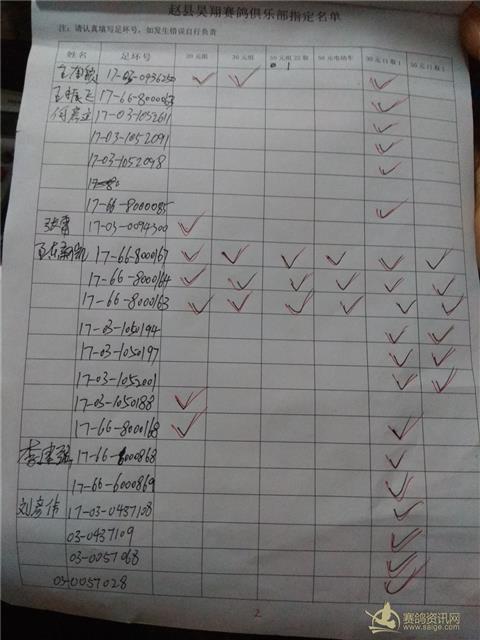 赵县昊翔赛鸽俱乐部指定名单
注：请认真填写足环号，如发生错误自行负责
姓名 足环号 20元组 30元组 50元组22取1 50元电动车 30元日取1 50元日取1
17-03-0936250
17-66-8000063
17-03-1052611
17-03-1052091
17-03-1052098
17-66-8000085
17-03-0094300
17-66-8000167
17-66-8000164
17-66-8000163
17-03-1050194
17-03-1050197
17-03-1052001
17-03-1050188
17-66-8000168
17-66-6000868
17-66-6000869
刘彦伟 17-03-0437108
03-0437109
03-0057068
03-0057028
2
赛鸽资讯网
www.saige.com